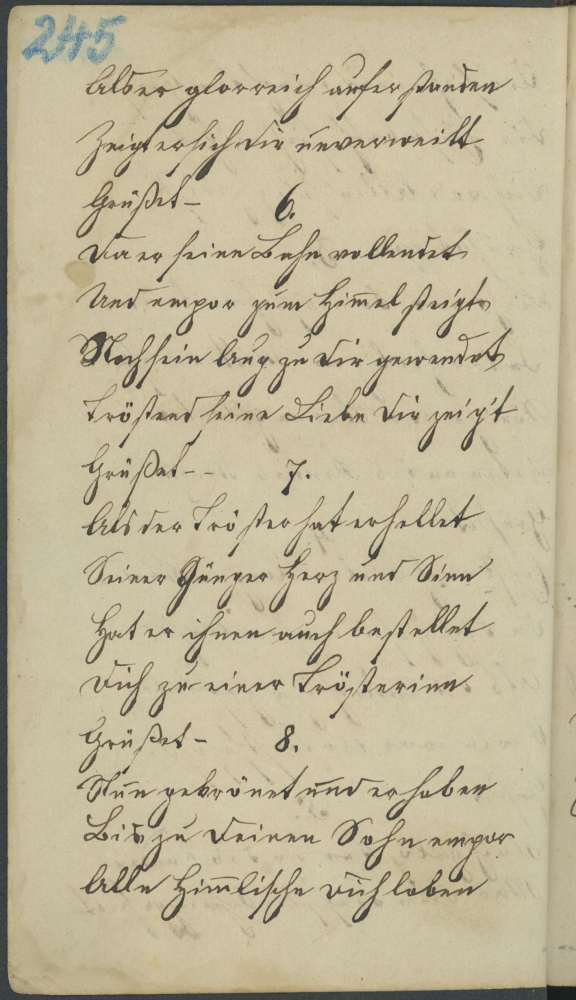 245
Als er glorreich auferstanden
Zeigt er sich dir unverweilt
Grüßet –
6.
Da er seine Bahn vollendet
Und empor zum Him̅el steigt
Noch sein Aug zu dir gewendet
Tröstend seine Liebe dir zeig't
Grüßet – –
7.
Als der Tröster hat erhellet
Seiner Jünger Herz und Sinn
Hat er ihnen auch bestellet
Dich zu einer Trösterinn
Grüßet –
8.
Nun gekrönet und erhoben
Bis zu Deinen Sohn empor
Alle Him̅lische dich loben